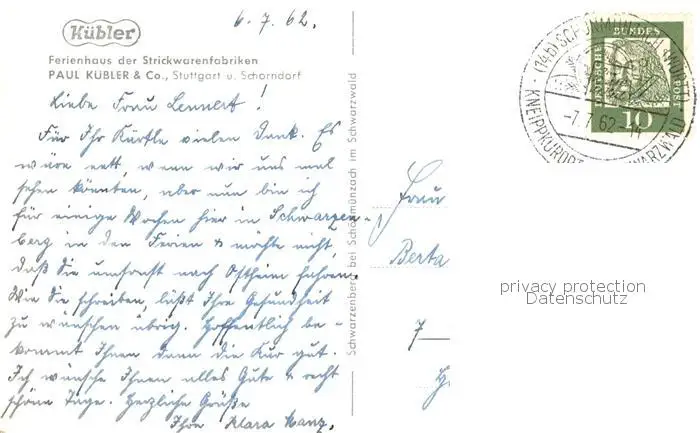 6.7.62.
Kübler
Ferienhaus der Strickwarenfabriken
PAUL KÜBLER & Co., Stuttgart u. Schorndorf
Liebe Frau Lennert!
Für Ihr Kärtle vielen Dank. Es
wäre nett, wenn wir uns mal
sehen könnten, aber nun bin ich
für einige Wochen hier in Schwarzen-
berg in den Ferien & möchte nicht,
daß Sie umsonst nach Ostheim fahren.
Wie Sie schreiben, läßt Ihre Gesundheit
zu wünschen übrig. Hoffentlich be-
kommt Ihnen dann die Kur gut.
Ich wünsche Ihnen alles Gute & recht
schöne Tage. Herzliche Grüße
Ihre Klara Kanz.
Schwarzenberg bei Schönmünzach im Schwarzwald
Frau
Berta
7
(14b) SCHÖNMÜNZACH (WÜRTT)
-7.7.62-14
KNEIPPKURORT SCHWARZWALD
DEUTSCHE BUNDESPOST
10
privacy protection
Datenschutz